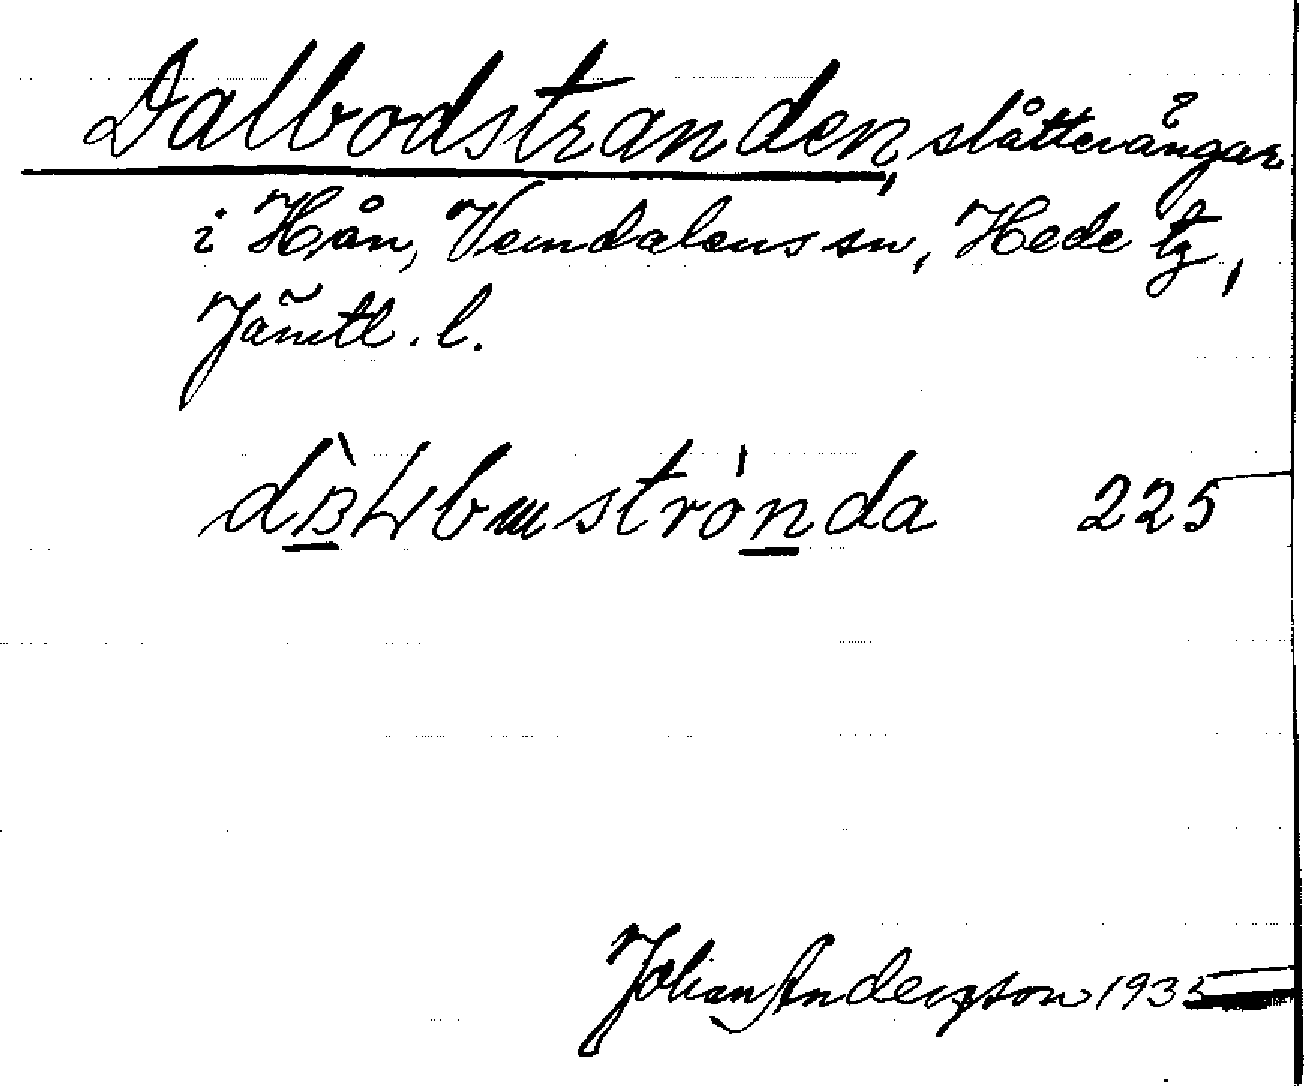 Dalbodstranden, slåttevångar
i Hån, Vemdalens sn, Hede tg,
Jämtl. l.
225
Johan Anderzson 1935